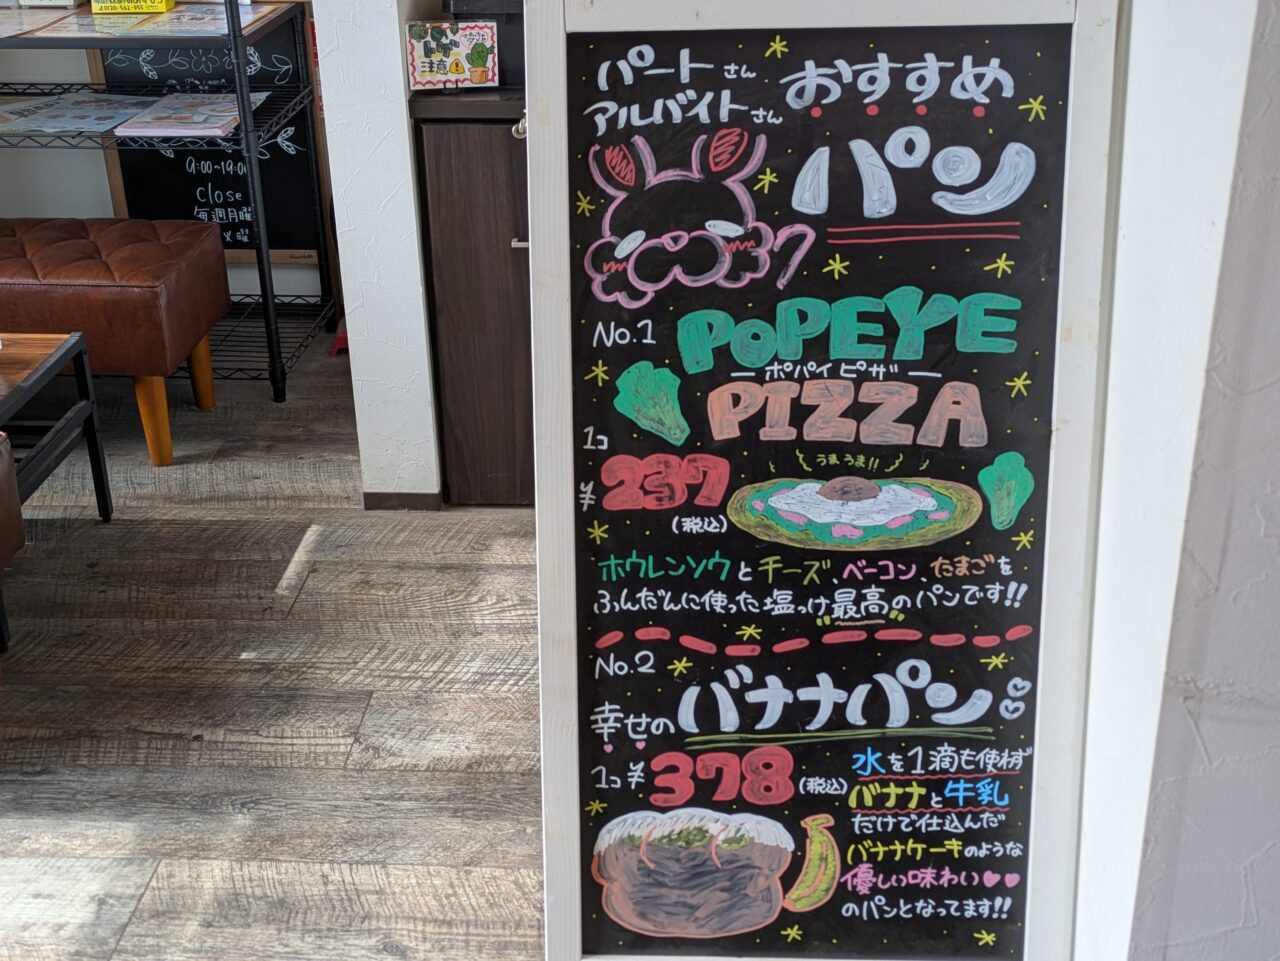 トゲ
注意
9:00~19:00
Close
毎週月曜
火曜
パートさん
アルバイトさん
おすすめ
パン
No.1
POPEYE
ーポパイピザー
PIZZA
1コ
¥237
(税込)
うまうま!!
ホウレンソウとチーズ、ベーコン、たまごを
ふんだんに使った塩っけ"最高"のパンです!!
No.2
幸せのバナナパン
1コ¥378(税込)
水を1滴も使わず
バナナと牛乳
だけで仕込んだ
バナナケーキのような
優しい味わい
のパンとなってます!!